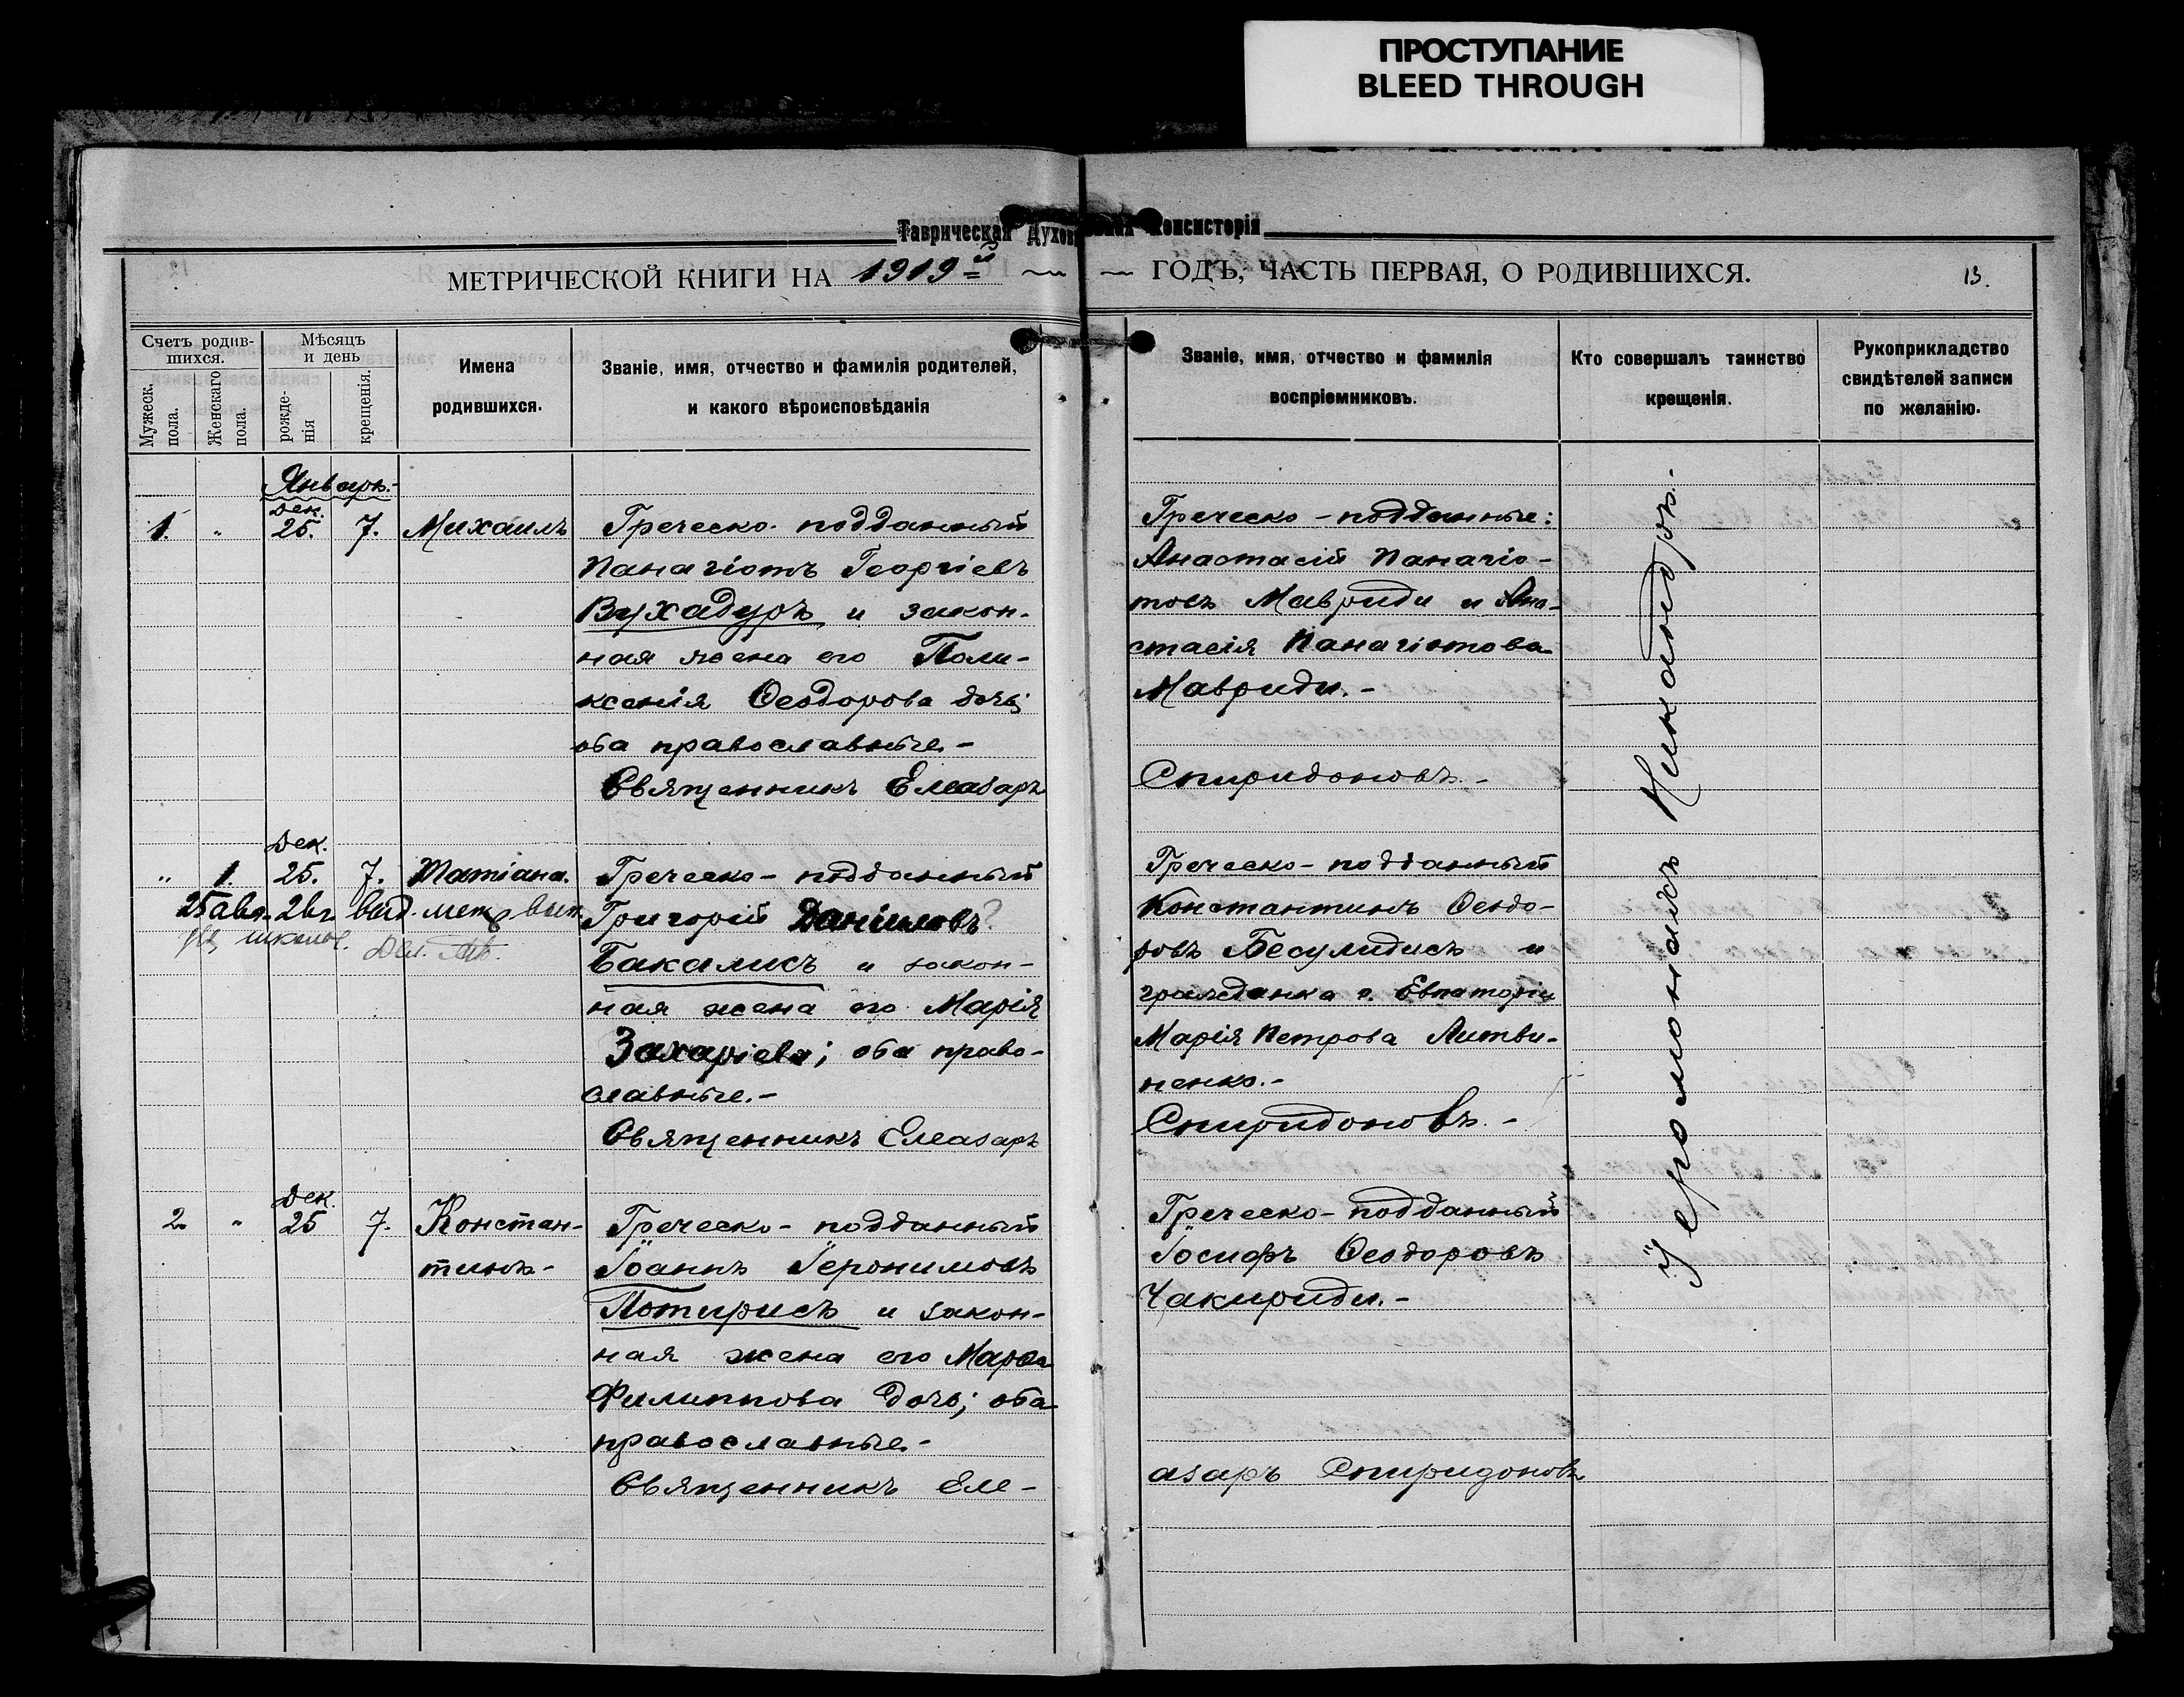 ПРОСТУПАНИЕ
BLEED THROUGH
Таврическая Духовная Консисторія
МЕТРИЧЕСКОЙ КНИГИ НА 1919й ГОДЪ, ЧАСТЬ ПЕРВАЯ, О РОДИВШИХСЯ.
13.
Счетъ родив-
шихся.
Мужеск.
пола.
Женскаго
пола.
Мѣсяцъ
и день
рожде-
нія
крещенія.
Имена
родившихся.
Званіе, имя, отчество и фамилія родителей,
и какого вѣроисповѣданія
Званіе, имя, отчество и фамилія
воспріемниковъ.
Кто совершалъ таинство
крещенія.
Рукоприкладство
свидѣтелей записи
по желанію.
Январь.-
Дек.
1. " 25. 7. Михаилъ
Греческо-подданный
Панагіотъ Георгіевъ
Вухадуръ и закон-
ная жена его Поли-
ксенія Ѳеодорова дочь;
оба православные.-
Священникъ Елеазаръ
Греческо-подданные:
Анастасій Панагіо-
товъ Мавриди и Ана-
стасія Панагіотова
Мавриди.-
Спиридоновъ.-
Дек.
" 1. 25. 7. Татіана.
25 авг. 26г. выд. мет. вып.
школы.
Греческо-подданный
Григорій Даніиловъ?
Бакалисъ и закон-
ная жена его Марія
Захаріева; оба право-
славные.-
Священникъ Елеазаръ
Греческо-подданный
Константинъ Ѳеодо-
ровъ Бесулидисъ и
гражданка г. Евпаторіи
Марія Петрова Литви-
ненко.-
Спиридоновъ.-
Дек.
2. " 25 7. Констан-
тинъ-
Греческо-подданный
Іоаннъ Іеронимовъ
Потирисъ и закон-
ная жена его Марѳа
Филиппова дочь; оба
православные.-
Священникъ Еле-
Греческо-подданный
Іосифъ Ѳеодоровъ
Чакириди.-
азаръ Спиридоновъ
Іеромонахъ Никандръ.-